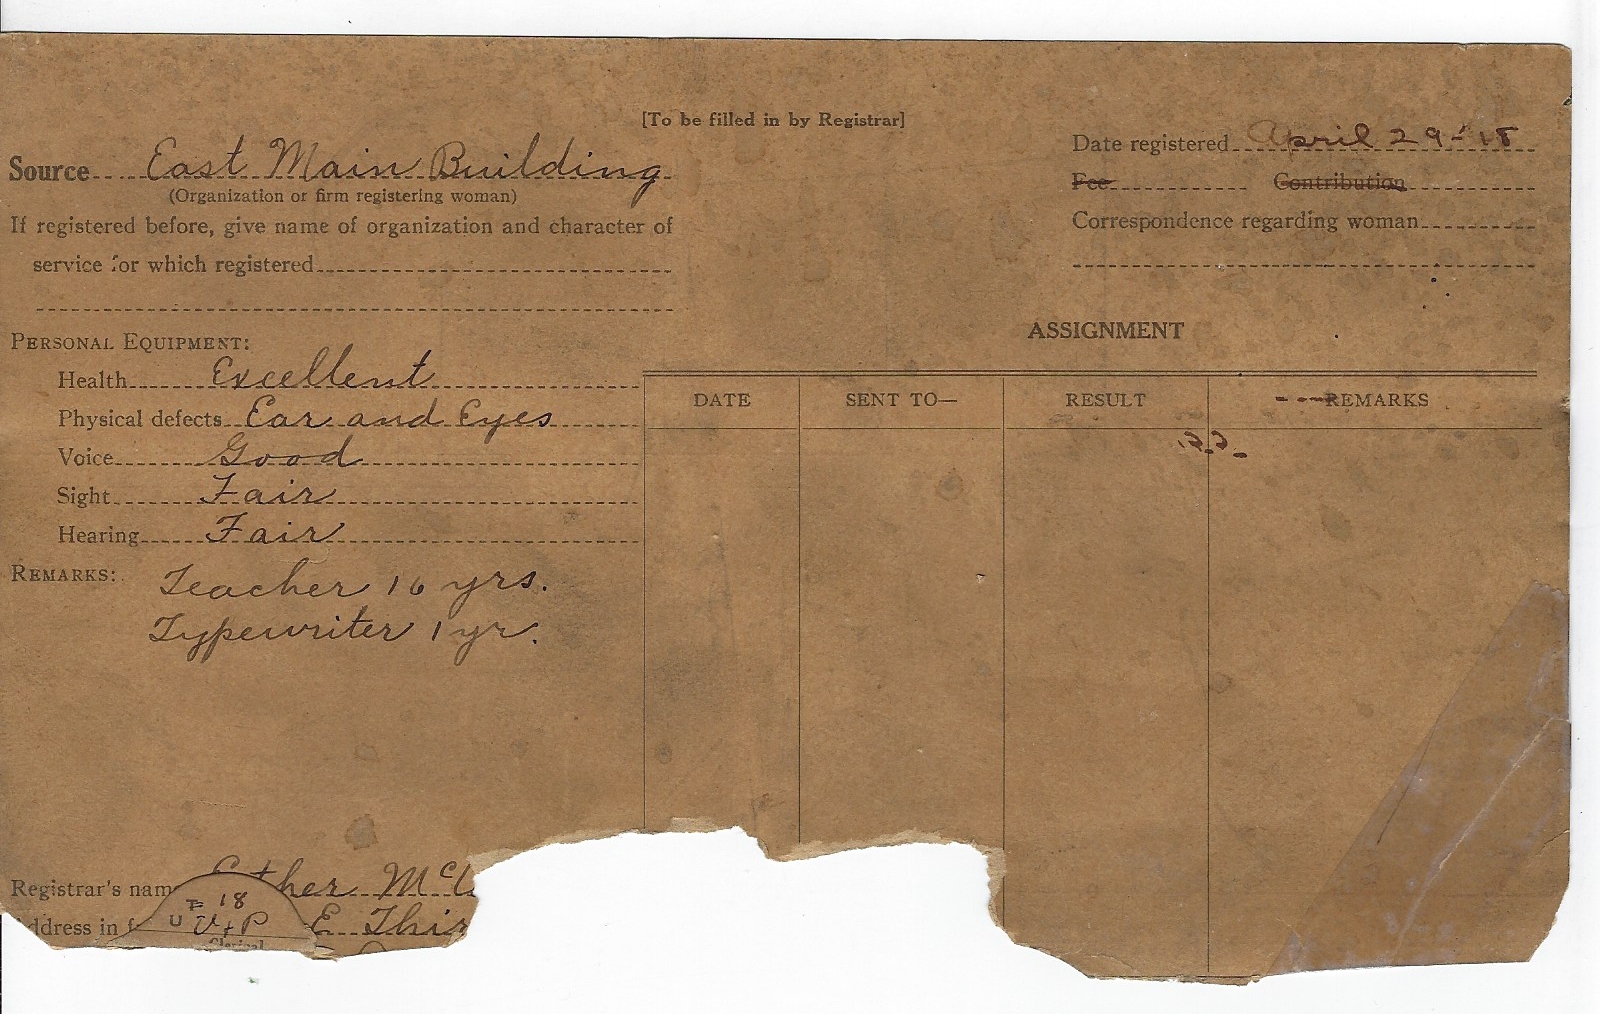 [To be filled in by Registrar]
Source East Main Building
(Organization or firm registering woman)
If registered before, give name of organization and character of
service for which registered
PERSONAL EQUIPMENT:
Health Excellent
Physical defects Ear and Eyes
Voice Good
Sight Fair
Hearing Fair
REMARKS: Teacher 16 yrs.
Typewriter 1 yr.
Date registered April 29-18
Fee Contribution
Correspondence regarding woman
ASSIGNMENT
DATE SENT TO— RESULT REMARKS
Registrar's name Esther
ddress in f E. Thir
18
U V+P
Clerical